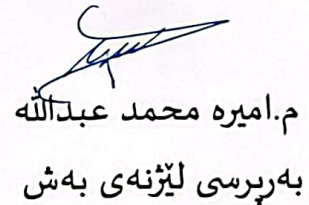 م.امیره محمد عبدالله
بەڕپرسی لێژنەی بەش